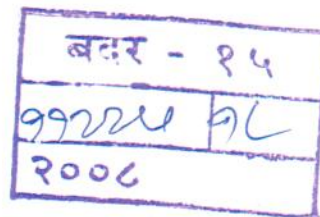 बदर - १५
११२२४ १८
२००८